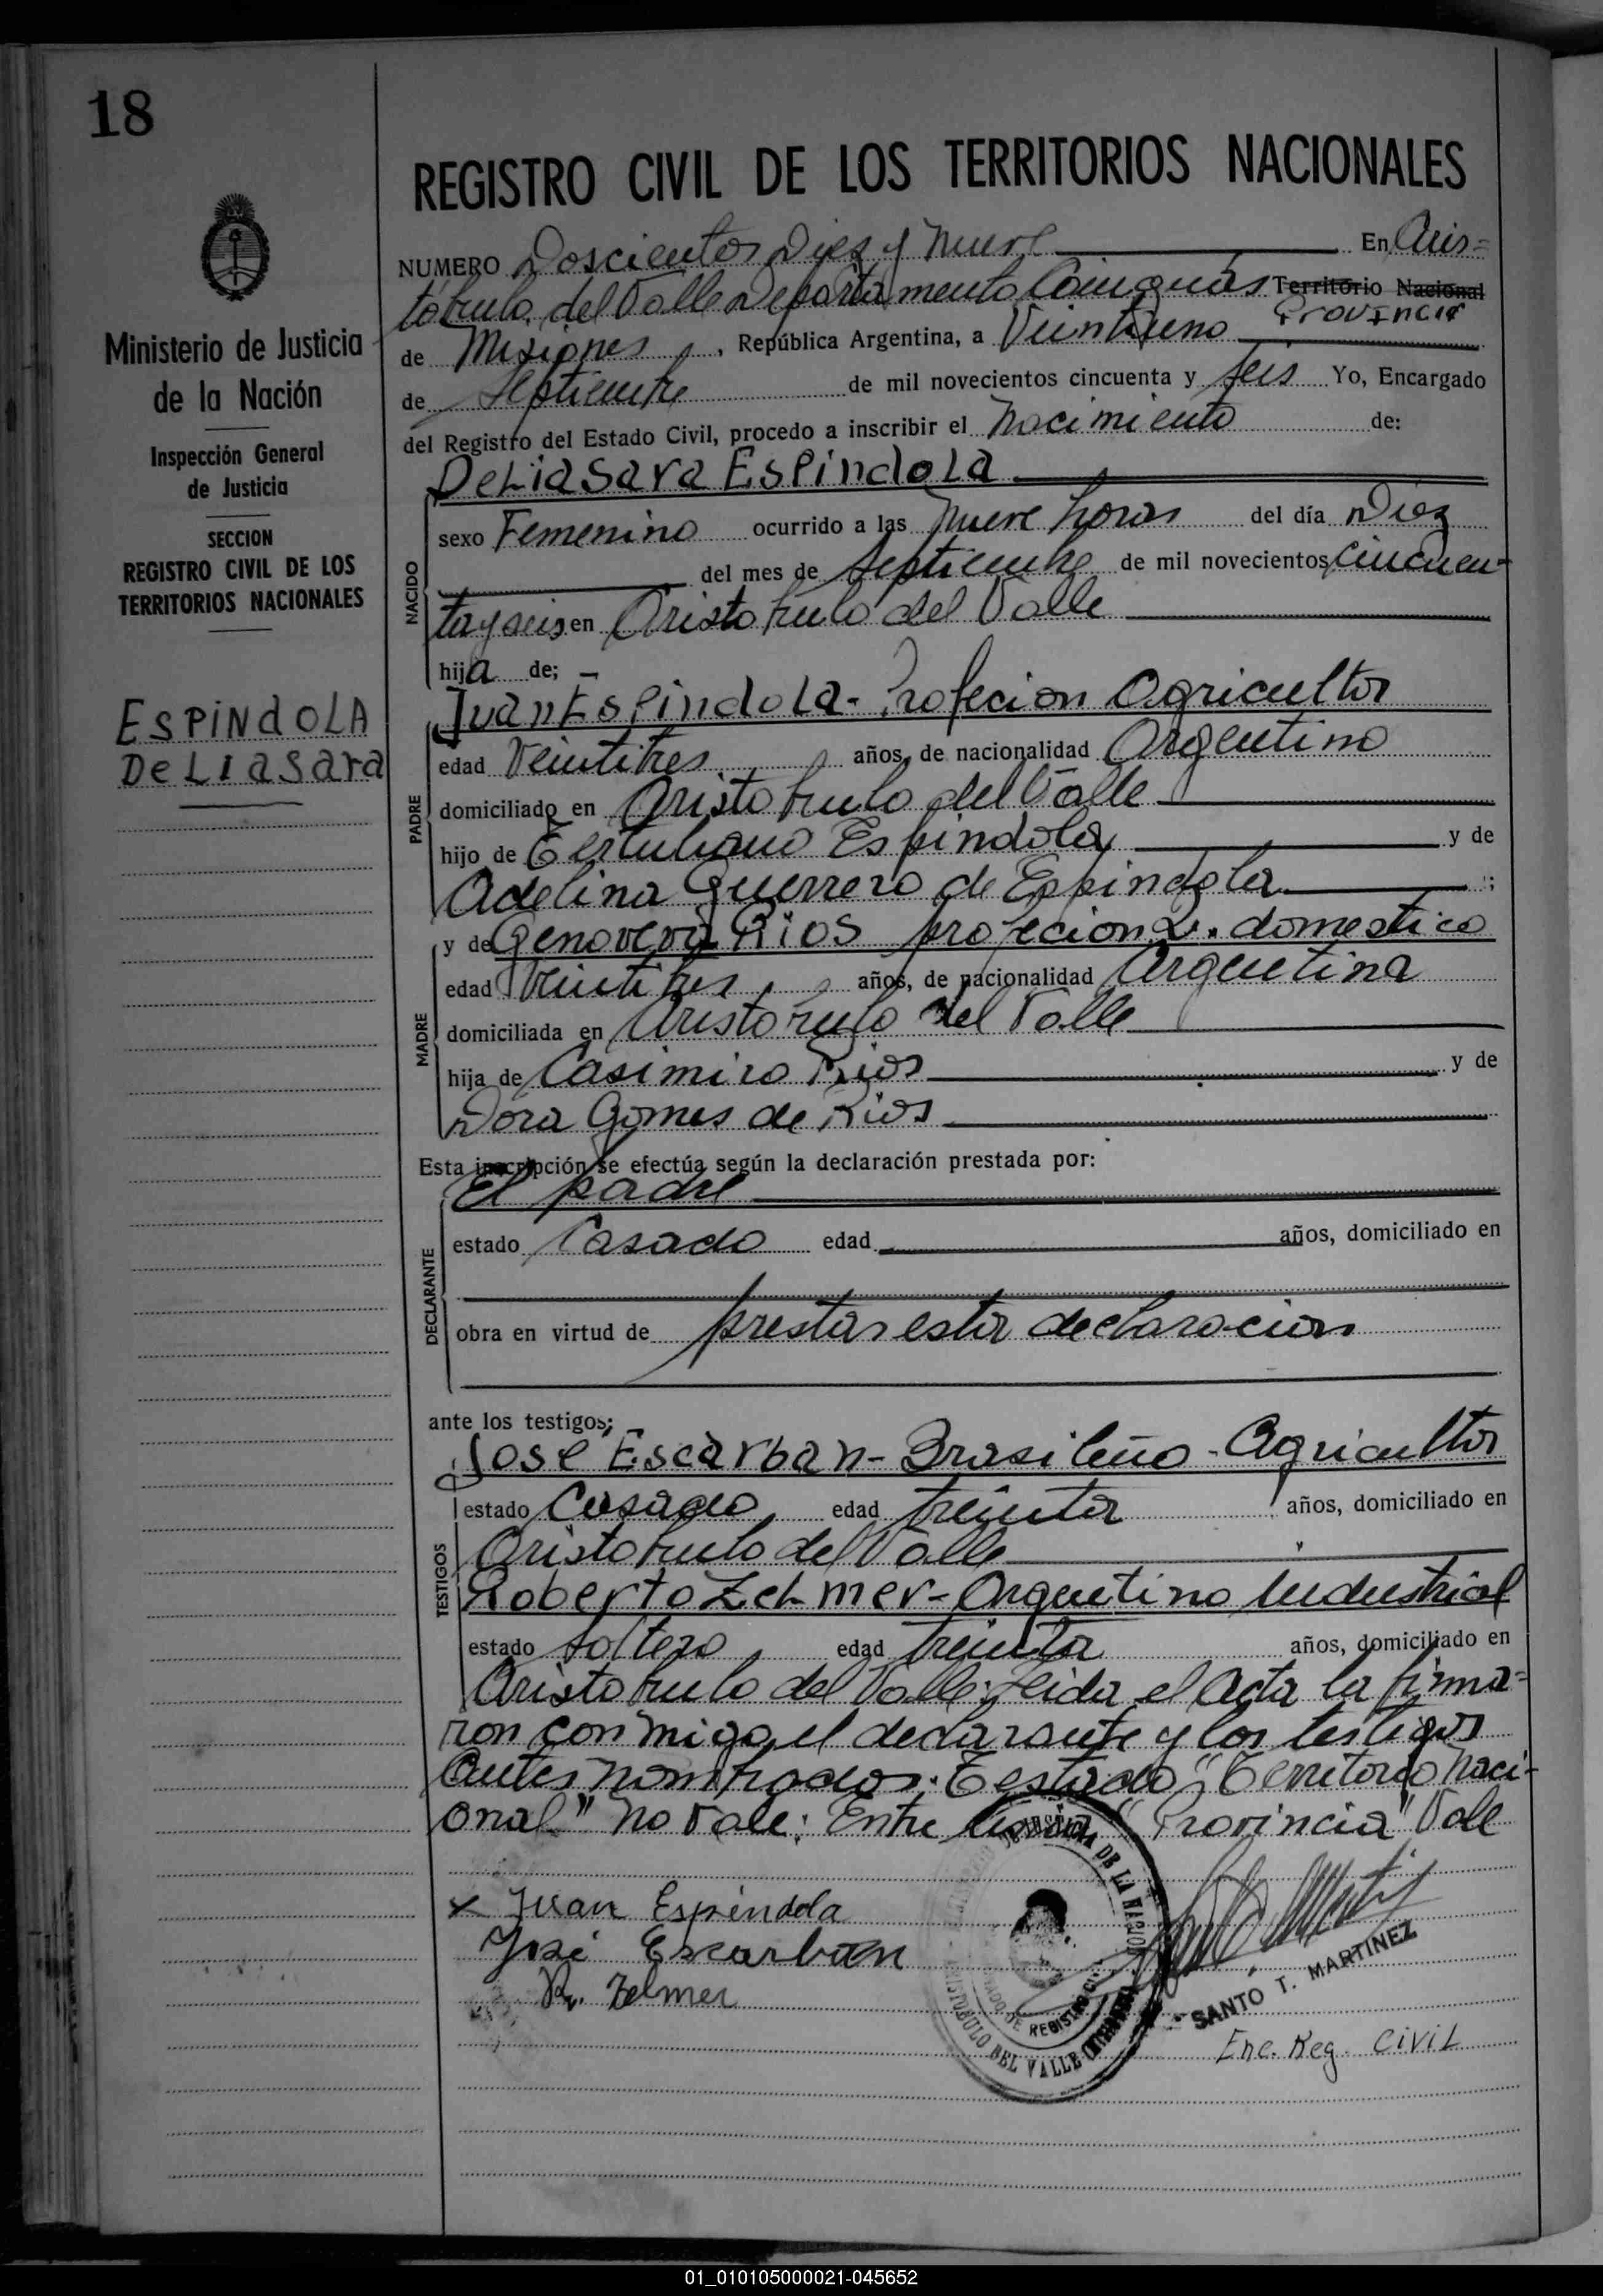 18
Ministerio de Justicia
de la Nación
Inspección General
de Justicia
SECCION
REGISTRO CIVIL DE LOS
TERRITORIOS NACIONALES
ESPINdOLA
DeLiaSara
REGISTRO CIVIL DE LOS TERRITORIOS NACIONALES
NUMERO Doscientos Diez y nueve En Aris=
tobulo del Valle Departamento Cainguas Territorio Nacional
Provincia
de Misiones, República Argentina, a Veintiuno
de Septiembre de mil novecientos cincuenta y seis Yo, Encargado
del Registro del Estado Civil, procedo a inscribir el Nacimiento de:
DeLiaSara EspindoLa
NACIDO
sexo Femenino ocurrido a las nueve horas del día Diez
del mes de Septiembre de mil novecientos cincuen-
ta y seis en Aristobulo del Valle
hija de; -
Juan EspindoLa - Profecion Agricultor
PADRE
edad Veintitres años, de nacionalidad Argentino
domiciliado en Aristobulo del Valle
hijo de Tertuliano Espindola y de
Adelina Guerrero de Espindola ;
MADRE
y de Genoveva Rios profecion Q. domestico
edad Veintitres años, de nacionalidad Argentina
domiciliada en Aristobulo del Valle
hija de Casimiro Rios y de
Dora Gomes de Rios
Esta inscripción se efectúa según la declaración prestada por:
El padre
DECLARANTE
estado Casado edad años, domiciliado en
obra en virtud de prestar esta declaracion
ante los testigos;
Jose Escarban - Brasileño - Agricultor
TESTIGOS
estado Casado edad treinta años, domiciliado en
Aristobulo del Valle
Roberto Zelmer - Argentino Industrial
estado soltero edad treinta años, domiciliado en
Aristobulo del Valle; Leida el Acta la firma=
ron conmigo el declarante y los testigos
antes nombrados. Testado "Territorio Naci-
onal" no vale: Entre lineas "Provincia" Vale
x Juan Espindola
José Escarban
R. Zelmer
DE JUSTICIA DE LA NACION
DE REGISTRO CIVIL
ARISTOBULO DEL VALLE
SANTO T. MARTINEZ
Enc. Reg. CiviL
01_010105000021-045652